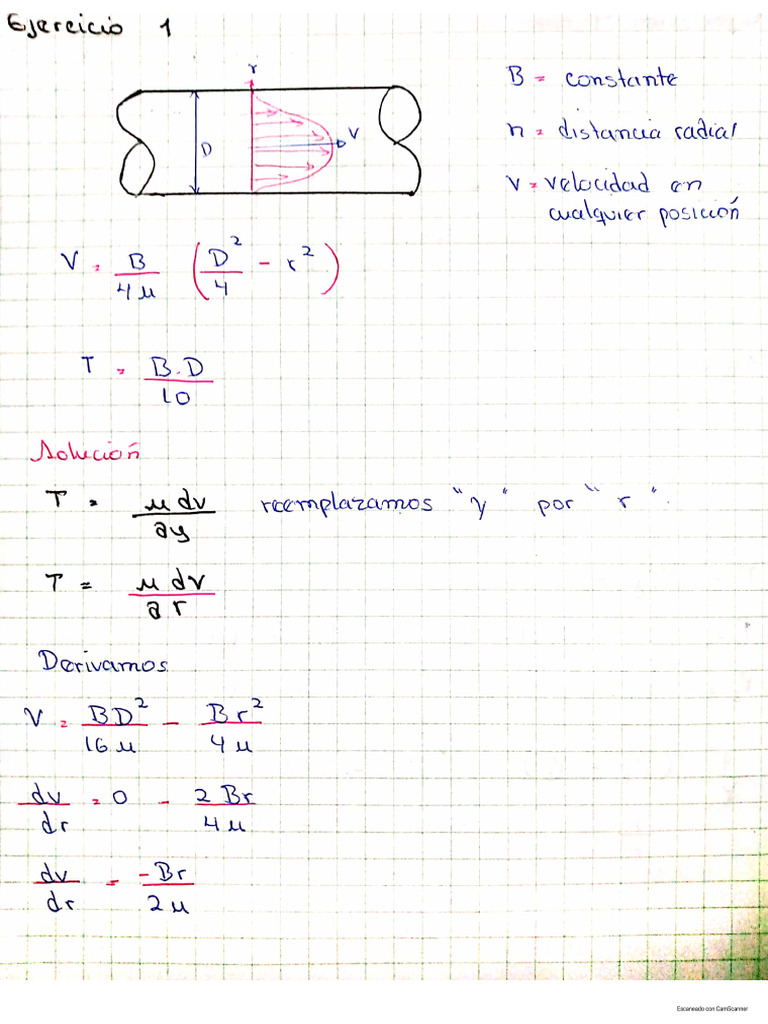 Ejercicio 1
r
D
V
B = constante
n = distancia radial
V = velocidad en
cualquier posición
V = B/4μ (D²/4 - r²)
T = B.D/10
Solución
T = μ dv/∂y reemplazamos "y" por "r".
T = μ dv/∂r
Derivamos
V = BD²/16μ - Br²/4μ
dv/dr = 0 - 2Br/4μ
dv/dr = -Br/2μ
Escaneado con CamScanner